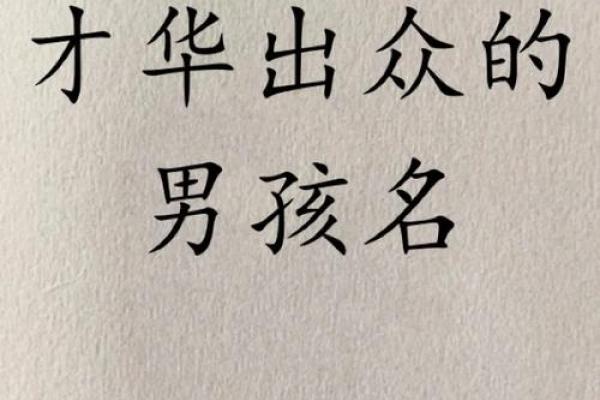 才华出众的
男孩名